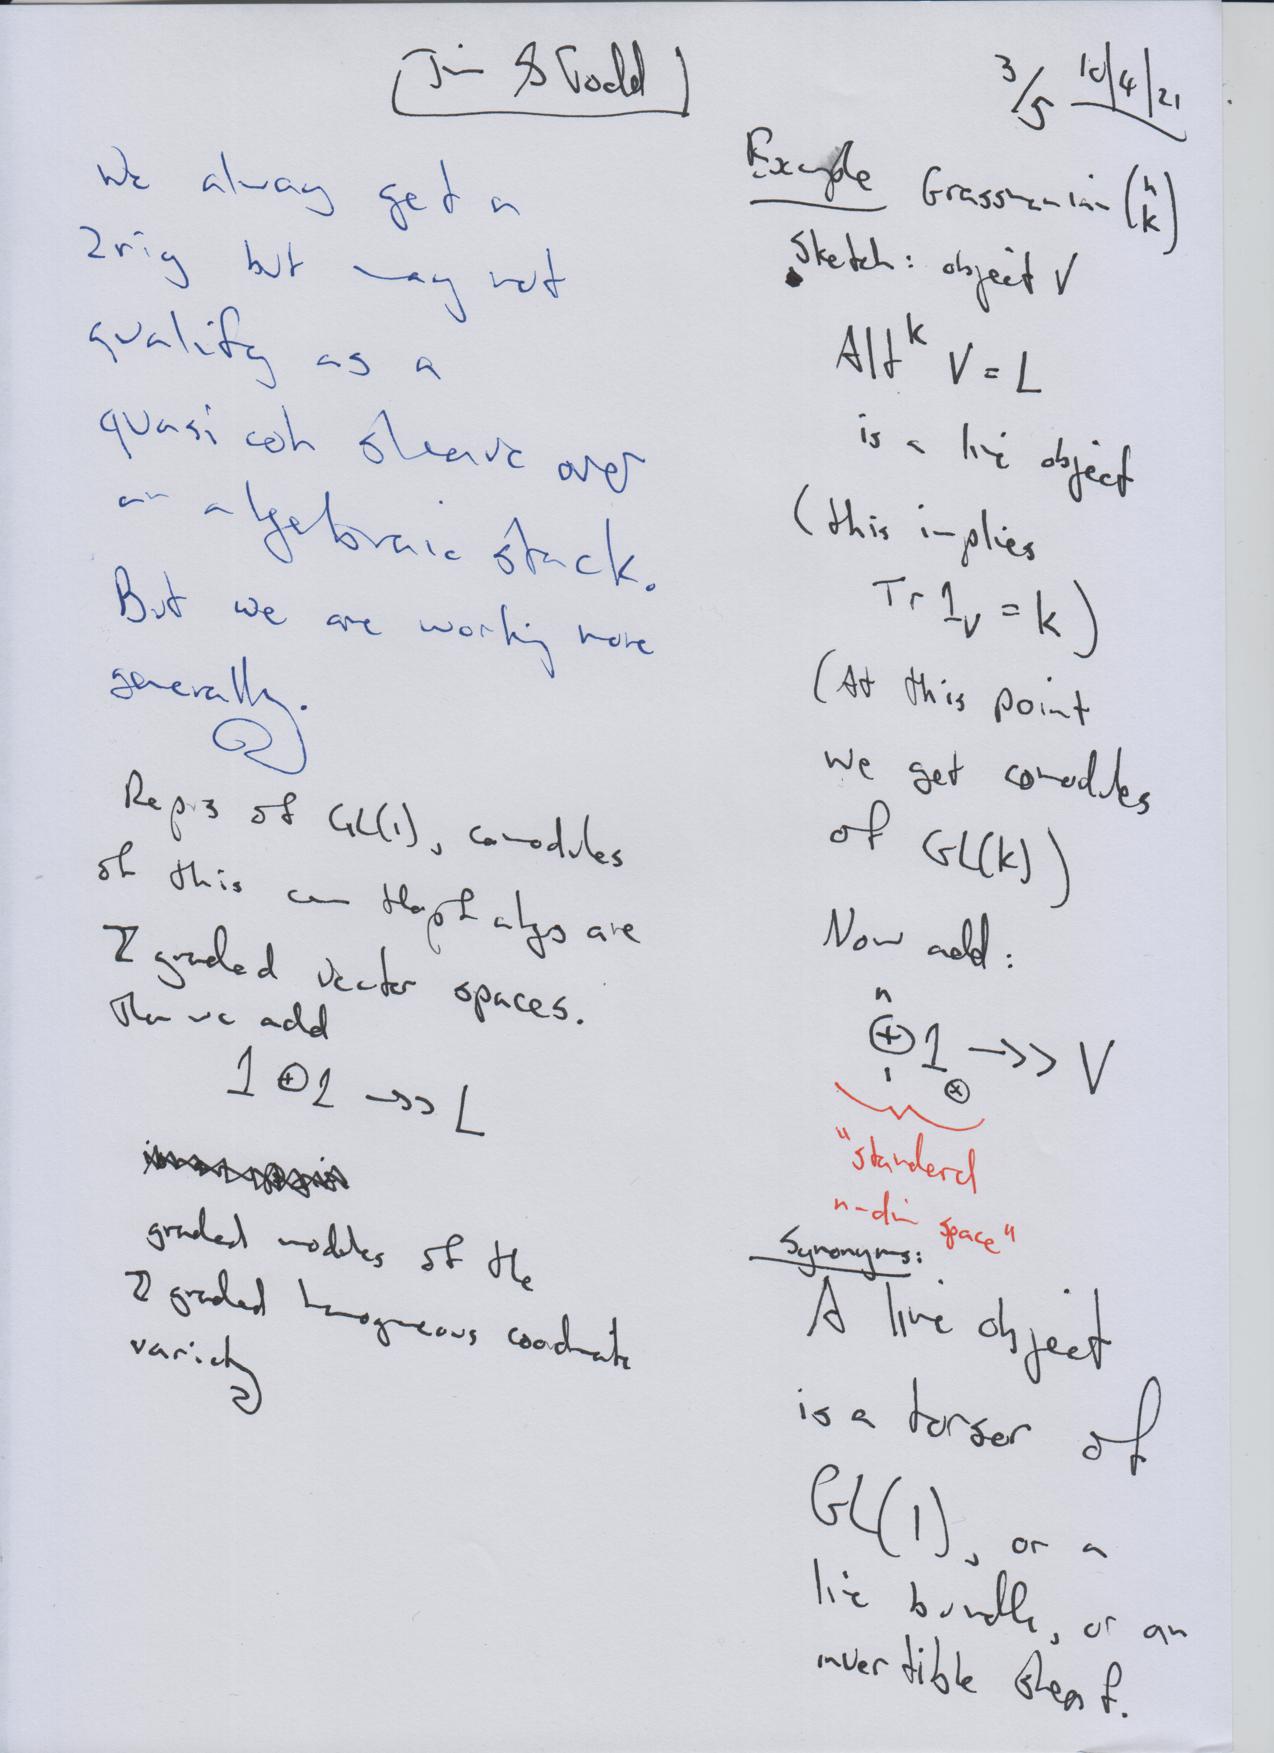 Jim & Todd
3/5 10/4/21
We alway get a
2rig but may not
qualify as a
quasi coh sheave over
an algebraic stack.
But we are working more
generally.
Reprs of GL(1), comodules
of this comm Hopf algs are
ℤ graded vector spaces.
Then we add
1 ⊕ 1 →>> L
graded modules of the
ℤ graded homogneous coordinate
variety
Example Grassmanian (n k)
Sketch: object V
Alt^k V = L
is a line object
(this implies
Tr 1_V = k)
(At this point
we get comodules
of GL(k))
Now add:
n
⊕ 1_⊗ →>> V
1
"standard
n-dim space"
Synonyms:
A line object
is a torser of
GL(1), or a
line bundle, or an
invertible sheaf.